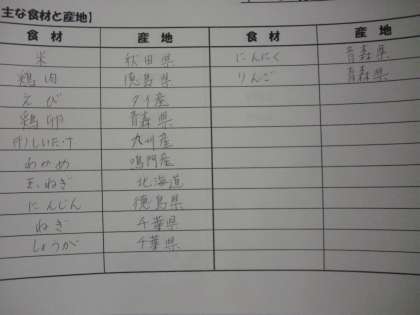 主な食材と産地】
食材 産地 食材 産地
米 秋田県 にんにく 青森県
鶏肉 徳島県 りんご 青森県
えび タイ産
鶏卵 青森県
干しいたけ 九州産
わかめ 鳴門産
玉ねぎ 北海道
にんじん 徳島県
ねぎ 千葉県
しょうが 千葉県